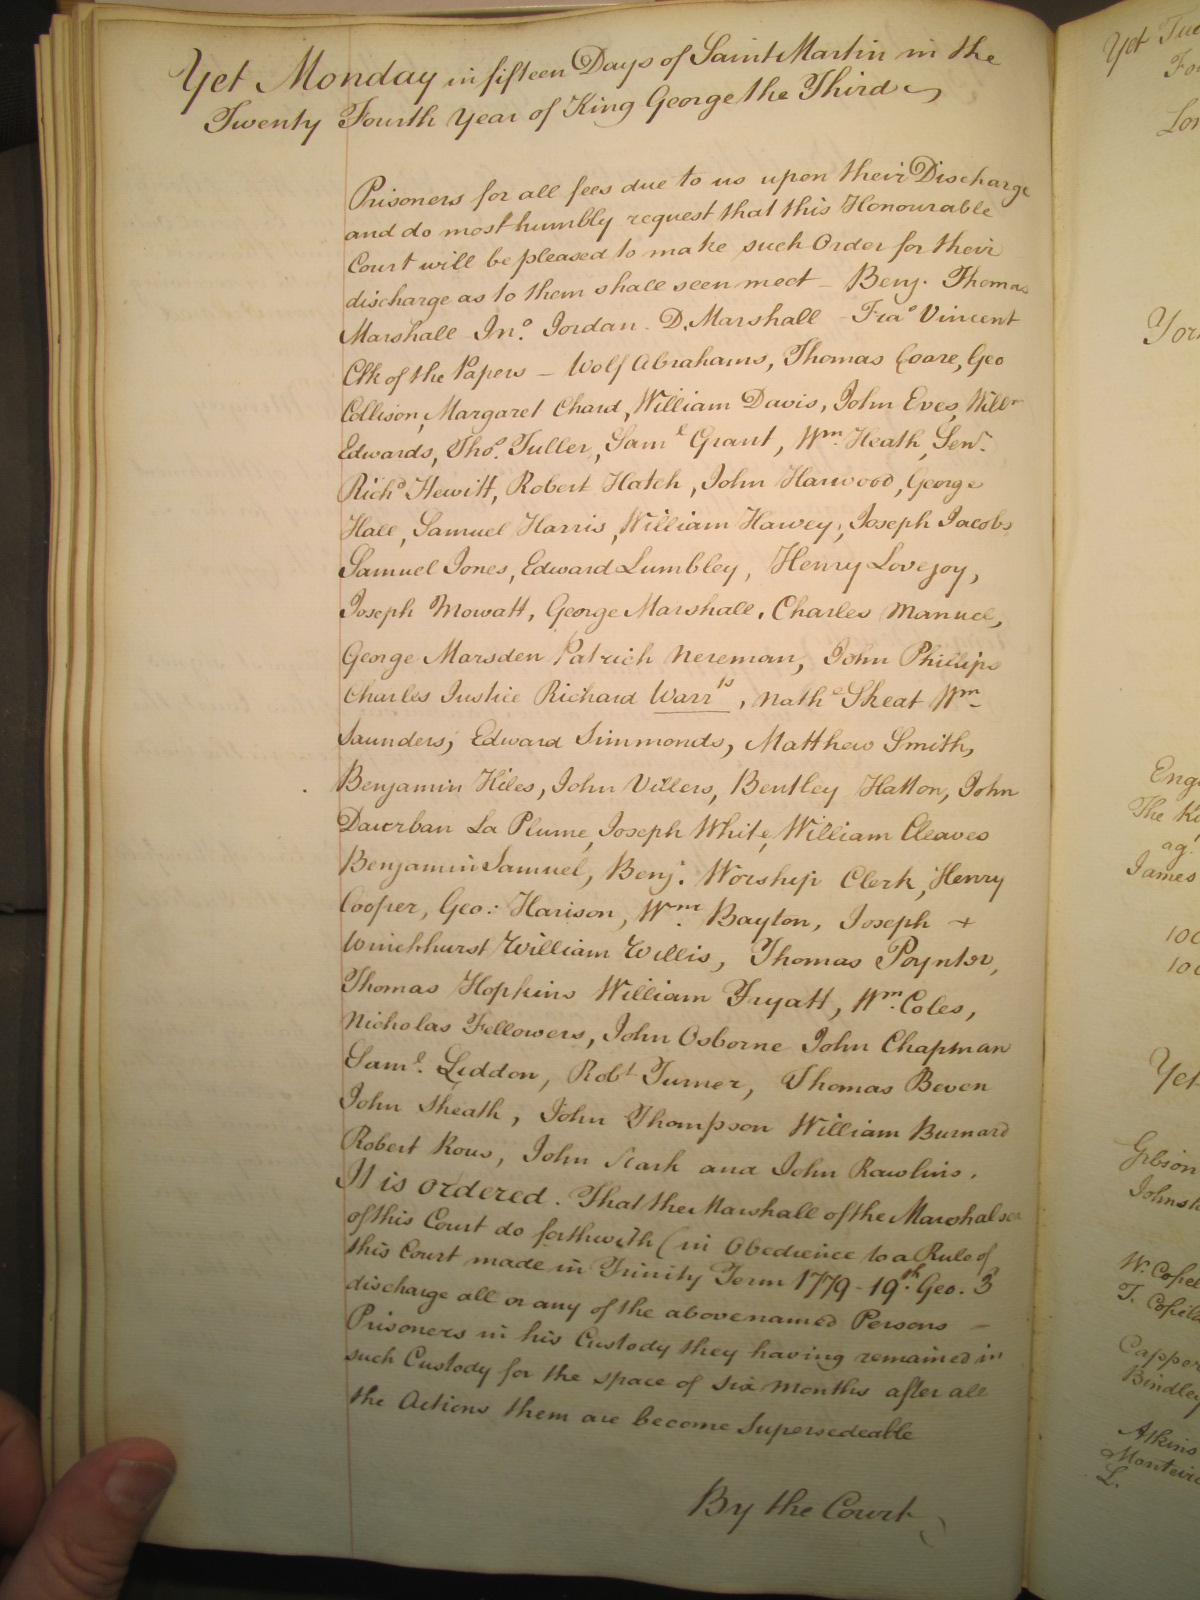 Yet Monday in fifteen Days of Saint Martin in the
Twenty Fourth Year of King George the Third
Prisoners for all fees due to us upon their Discharge
and do most humbly request that this Honourable
Court will be pleased to make such Order for their
discharge as to them shall seen meet - Benj. Thomas
Marshall Jno. Jordan. D. Marshall - Fra.s Vincent
Clk of the Papers - Wolf Abrahams, Thomas Coare, Geo
Collison, Margaret Chard, William Davis, John Eves, Willm
Edwards, Thos. Fuller, Saml Grant, Wm. Heath, Senr.
Richd Hewitt, Robert Hatch, John Harwood, George
Hall, Samuel Harris, William Harvey, Joseph Jacobs
Samuel Jones, Edward Lumbley, Henry Lovejoy,
Joseph Mowatt, George Marshall, Charles Manuel,
George Marsden Patrick Nereman, John Phillips
Charles Justice Richard Warrts, Nathl Skeat Wm
Saunders, Edward Simmonds, Matthew Smith,
Benjamin Kiles, John Villers, Bentley Hatton, John
La Plume, Joseph White, William Cleaves
Benjamin Samuel, Benj. Worship Clerk, Henry
Cooper, Geo: Harison, Wm. Bayton, Joseph +
Winckhurst William Willis, Thomas Poynter,
Thomas Hopkins William Fryatt, Wm. Coles,
Nicholas Fellowers, John Osborne John Chapman
Saml. Liddon, Robt Turner, Thomas Beven
John Sheath, John Thompson William Burnard
Robert Rous, John Stark and John Rawlins.
It is ordered. That the Marshall of the Marshalsea
of this Court do forthwith (in Obedience to a Rule of
this Court made in Trinity Term 1779 - 19th. Geo. 3
discharge all or any of the abovenamed Persons -
Prisoners in his Custody they having remained in
such Custody for the space of six months after all
the Actions them are become Supersedeable
By the Court
Yet Tue
Fo
Lon
York
Eng
The Ki
agt
James
100
100
Yet
Gibson
Johnst
W. Copel
T. Copela
Capper
Bindley
Atkins
Monteir
L.